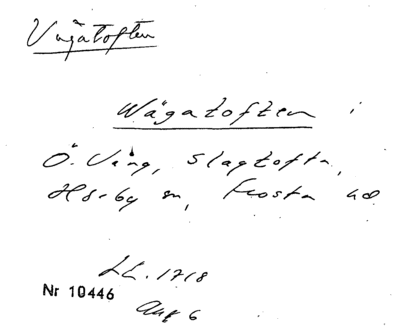 Vägatoften
Wägatoften i
Ö. Vång, Slagtofta,
Hörby sn, Frosta hd
LL. 1718
Nr 10446
Akt 6